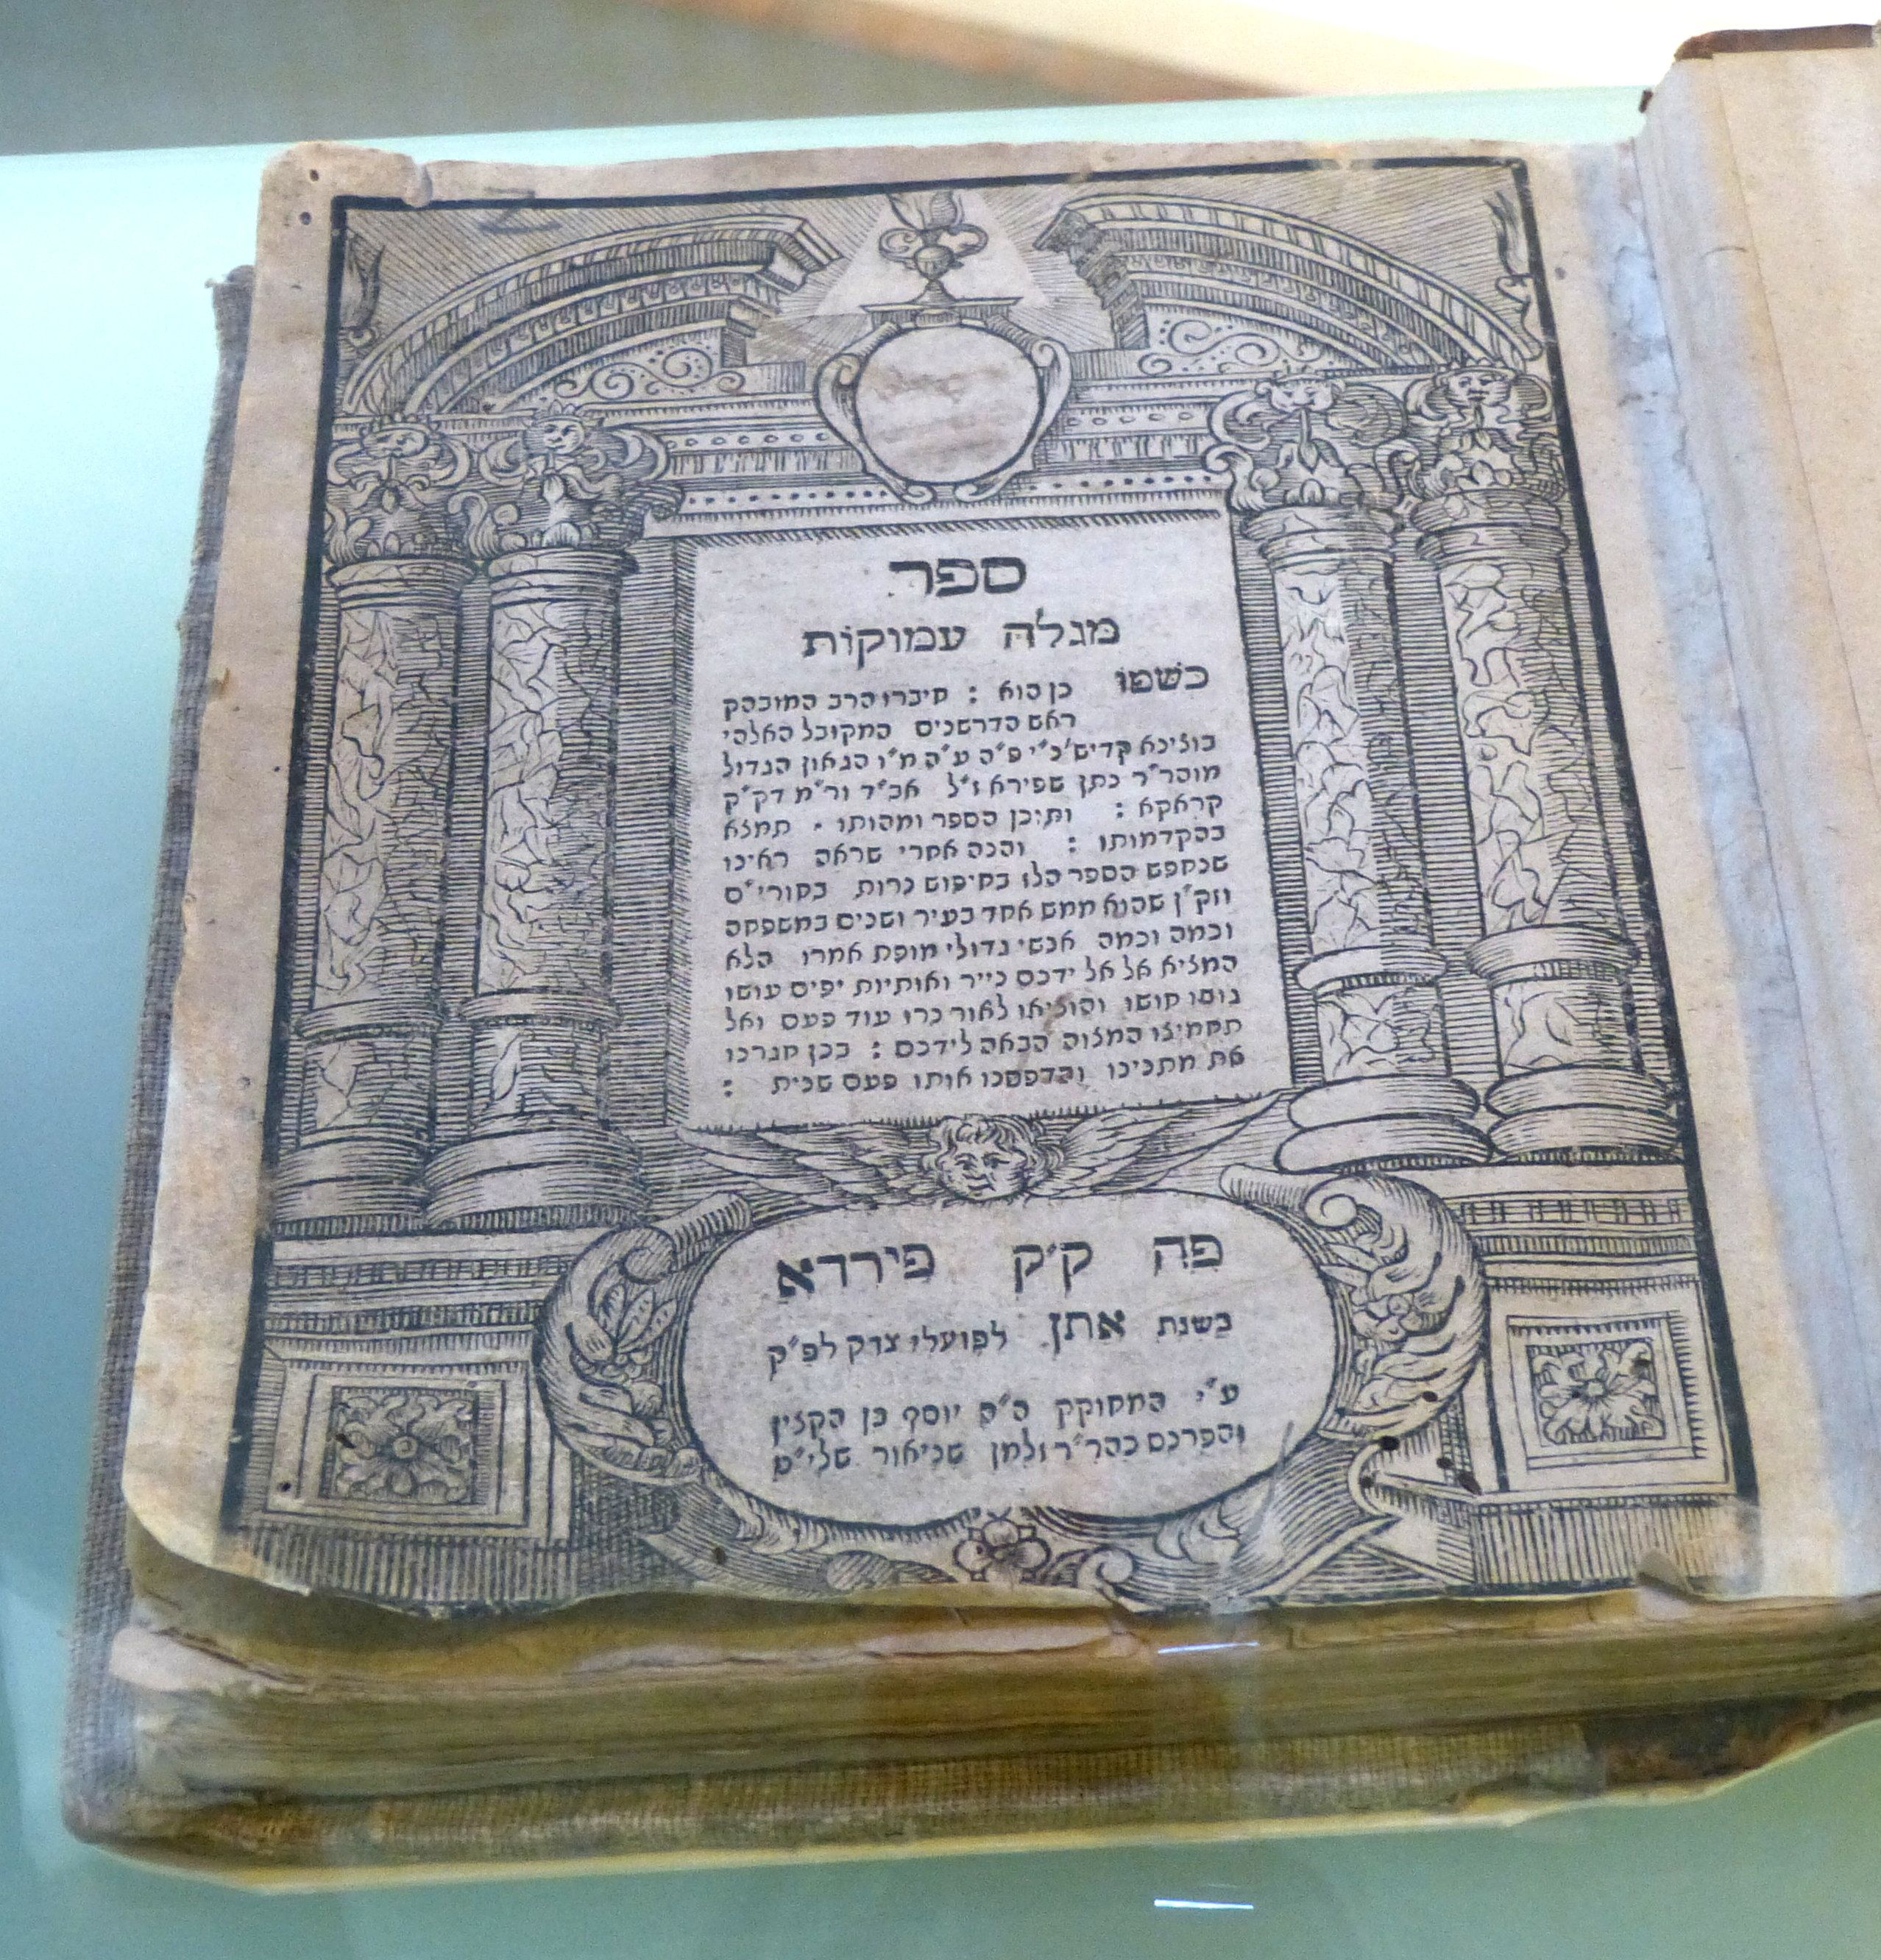 ספר
מגלה עמוקות
כשמו כן הוא : חיברו הרב המובהק
ראש הדרשנים המקובל האלהי
בוצינא קדישא נ"י פ"ה ע"ה ח"ו הגאון הגדול
מוהר"ר נתן שפירא ז"ל אב"ד ור"מ דק"ק
קראקא : ותוכן הספר ומהותו . תמצא
בהקדמותו : והנה אחרי שראה ראינו
שנחפש הספר הלז בחיפוש נרות בחורי"ם
וזק"ן שהוא ממש אחד בעיר ושנים במשפחה
וכמה וכמה אנשי גדולי מופת אמרו הלא
המציא אל אל ידכם נייר ואותיות יפים עושו
גושו חושו והוציאו לאור נרו עוד פעם ואל
תחמיצו המצוה הבאה לידכם : בכן חגרנו
את מתנינו והדפסנו אותו פעם שנית :
פה ק"ק פיורדא
בשנת אתן לפועלי צדק לפ"ק
ע"י המחוקק ה"ה יוסף בן הקצין
והפרנס כהר"ר זלמן שניאור שלי"ט